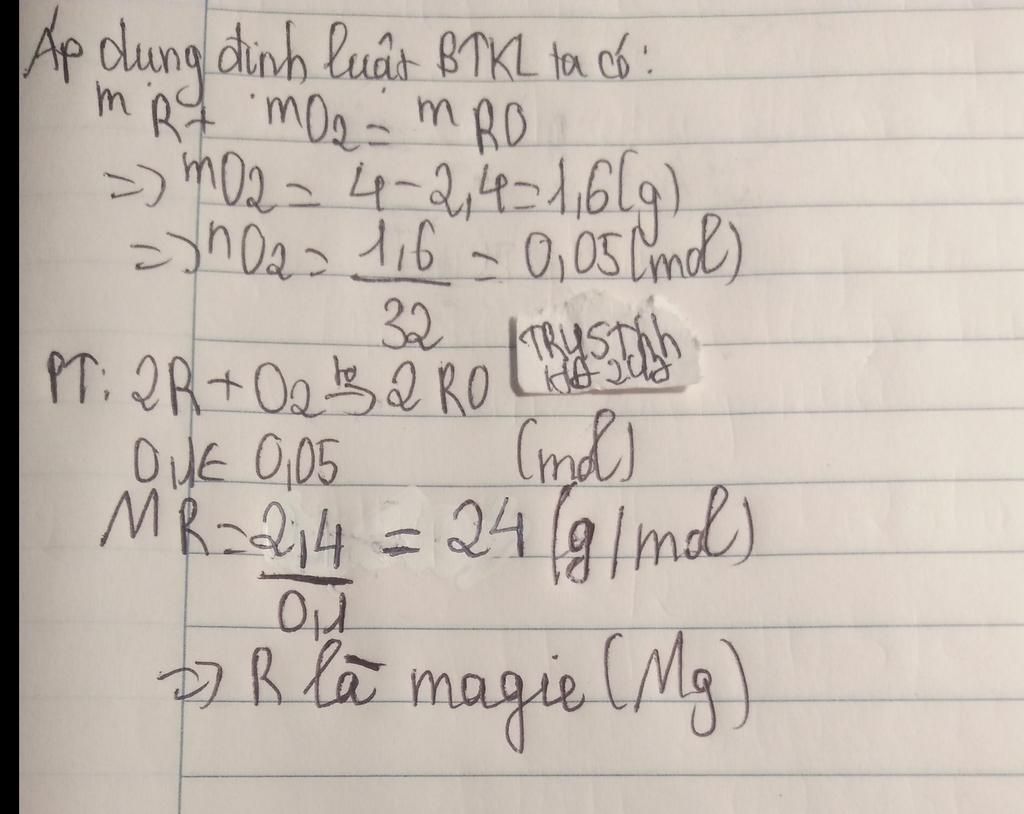 Áp dụng định luật BTKL ta có:
mR + mO2 = mRO
=> mO2 = 4 - 2,4 = 1,6(g)
=> nO2 = 1,6/32 = 0,05(mol)
TRYSThh
PT: 2R + O2 to→ 2RO
0,1 ← 0,05 (mol)
MR = 2,4/0,1 = 24 (g/mol)
=> R là magie (Mg)